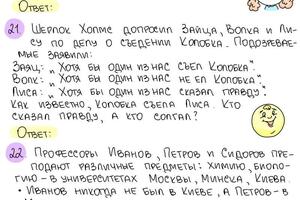 Ответ:
21 Шерлок Холмс допросил Зайца, Волка и Ли-
су по делу о съедении Колобка. Подозревае-
мые заявили:
Заяц: „Хотя бы один из нас съел Колобка".
Волк: „Хотя бы один из нас не ел Колобка".
Лиса: „Хотя бы один из нас сказал правду".
Как известно, Колобка съела Лиса. Кто
сказал правду, а кто солгал?
Ответ:
22 Профессоры Иванов, Петров и Сидоров пре-
подают различные предметы: химию, биоло-
гию - в университетах Москвы, Минска, Киева.
• Иванов никогда не был в Киеве, а Петров - в